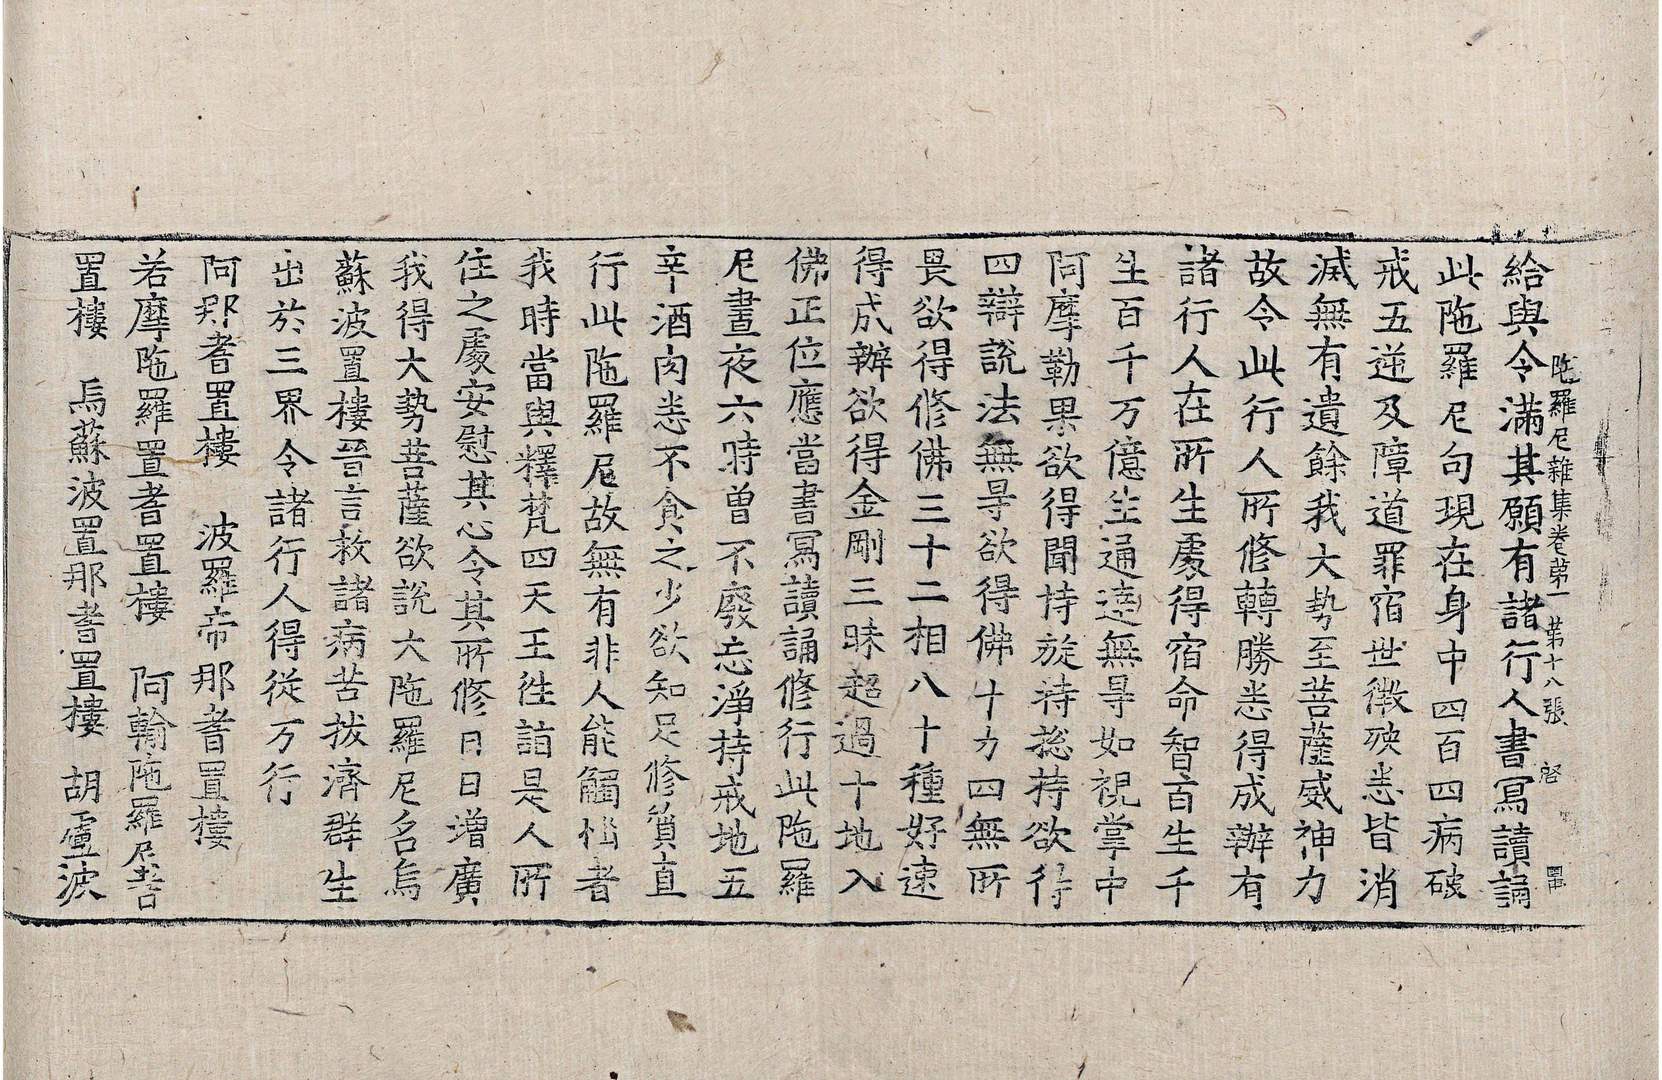 陁羅尼雜集卷第一 第十八張 啓
給與令滿其願有諸行人書寫讀誦
此陁羅尼句現在身中四百四病破
戒五逆及障道罪宿世微殃悉皆消
滅無有遺餘我大勢至菩薩威神力
故令此行人所修轉勝悉得成辦有
諸行人在所生處得宿命智百生千
生百千万億生通達無㝵如視掌中
阿摩勒果欲得聞持旋持捴持欲得
四辯說法無㝵欲得佛十力四無所
畏欲得修佛三十二相八十種好速
得成辦欲得金剛三昧超過十地入
佛正位應當書寫讀誦修行此陁羅
尼晝夜六時曽不廢忘淨持戒地五
辛酒肉悉不食之少欲知足修質直
行此陁羅尼故無有非人能觸惱者
我時當與釋梵四天王徃詣是人所
住之處安慰其心令其所修日日增廣
我得大勢菩薩欲說大陁羅尼名烏
蘇波置樓晉言救諸病苦拔濟群生
出於三界令諸行人得從万行
阿那耆置樓 波羅帝那耆置樓
若摩陁羅置耆置樓 阿輸陁羅尼耆
置樓 烏蘇波置那耆置樓 胡盧波